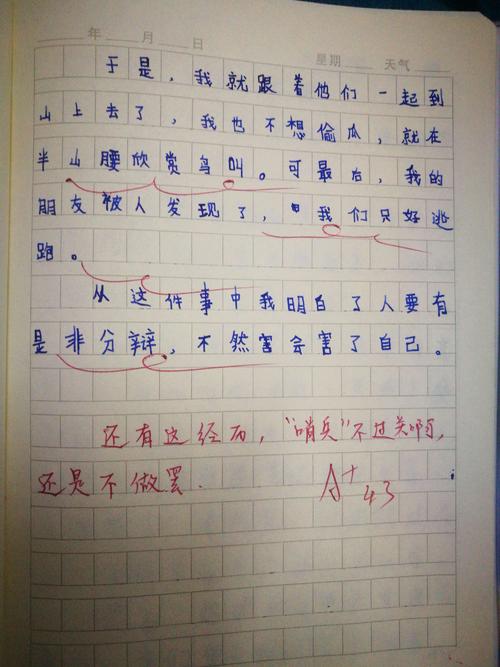 年 月 日
星期 天气
于是，我就跟着他们一起到
山上去了，我也不想偷瓜，就在
半山腰欣赏鸟叫。可最后，我的
朋友被人发现了，我们只好逃
跑。
从这件事中我明白了人要有
是非分辩，不然害会害了自己。
还有这经历，“哨兵”不过关啊，
还是不做罢.
A+ 43